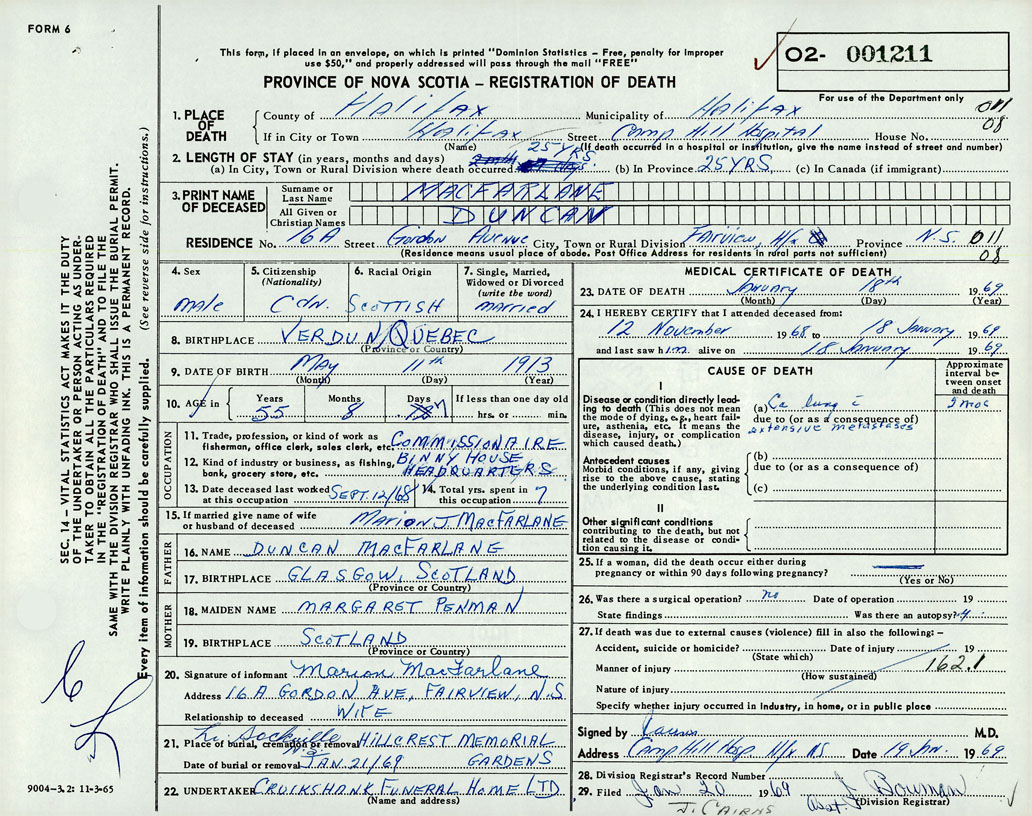 FORM 6
This form, if placed in an envelope, on which is printed "Dominion Statistics – Free, penalty for improper
use $50," and properly addressed will pass through the mail "FREE"
O2- 001211
PROVINCE OF NOVA SCOTIA – REGISTRATION OF DEATH
For use of the Department only
1. PLACE OF DEATH
County of Halifax Municipality of Halifax 011
If in City or Town Halifax Street Camp Hill Hospital House No. 08
(Name) (If death occurred in a hospital or institution, give the name instead of street and number)
2. LENGTH OF STAY (in years, months and days) 25 YRS.
(a) In City, Town or Rural Division where death occurred (b) In Province 25 YRS. (c) In Canada (if immigrant)
3. PRINT NAME OF DECEASED
Surname or Last Name MACFARLANE
All Given or Christian Names DUNCAN
RESIDENCE No. 16A Street Gordon Avenue City, Town or Rural Division Fairview, Hfx Province N.S. 011
(Residence means usual place of abode. Post Office Address for residents in rural parts not sufficient) 08
4. Sex male
5. Citizenship (Nationality) Cdn.
6. Racial Origin SCOTTISH
7. Single, Married, Widowed or Divorced (write the word) married
8. BIRTHPLACE VERDUN, QUEBEC
(Province or Country)
9. DATE OF BIRTH May 11th 1913
(Month) (Day) (Year)
10. AGE in Years 55 Months 8 Days 7 If less than one day old hrs. or min.
OCCUPATION
11. Trade, profession, or kind of work as fisherman, office clerk, sales clerk, etc. COMMISSIONAIRE
12. Kind of industry or business, as fishing, bank, grocery store, etc. BINNY HOUSE HEADQUARTERS
13. Date deceased last worked at this occupation SEPT. 12/68 14. Total yrs. spent in this occupation 7
15. If married give name of wife or husband of deceased MARION J. MACFARLANE
FATHER
16. NAME DUNCAN MACFARLANE
17. BIRTHPLACE GLASGOW, SCOTLAND
(Province or Country)
MOTHER
18. MAIDEN NAME MARGARET PENMAN
19. BIRTHPLACE SCOTLAND
(Province or Country)
20. Signature of informant Marion MacFarlane
Address 16A GORDON AVE, FAIRVIEW, N.S
Relationship to deceased WIFE
21. Place of burial, cremation or removal Sackville HILLCREST MEMORIAL
Date of burial or removal JAN. 21/69 GARDENS
22. UNDERTAKER CRUIKSHANK FUNERAL HOME LTD
(Name and address)
MEDICAL CERTIFICATE OF DEATH
23. DATE OF DEATH January 18th 1969
(Month) (Day) (Year)
24. I HEREBY CERTIFY that I attended deceased from:
12 November 1968 to 18 January 1969
and last saw him alive on 18 January 1969
CAUSE OF DEATH
Approximate interval between onset and death
I
Disease or condition directly leading to death (This does not mean the mode of dying, e.g., heart failure, asthenia, etc. It means the disease, injury, or complication which caused death.)
(a) Ca lung c̄ 3 mos
due to (or as a consequence of)
extensive metastases
Antecedent causes
Morbid conditions, if any, giving rise to the above cause, stating the underlying condition last.
(b)
due to (or as a consequence of)
(c)
II
Other significant conditions
contributing to the death, but not related to the disease or condition causing it.
25. If a woman, did the death occur either during pregnancy or within 90 days following pregnancy?
(Yes or No)
26. Was there a surgical operation? no Date of operation 19
State findings Was there an autopsy?
27. If death was due to external causes (violence) fill in also the following: –
Accident, suicide or homicide? Date of injury 19
(State which)
Manner of injury 162.1
(How sustained)
Nature of injury
Specify whether injury occurred in industry, in home, or in public place
Signed by Cairns M.D.
Address Camp Hill Hosp. Hfx NS Date 19 Jan. 1969
28. Division Registrar's Record Number
29. Filed Jan 20 1969 J Bowman
J. CAIRNS Asst. (Division Registrar)
SEC. 14 – VITAL STATISTICS ACT MAKES IT THE DUTY
OF THE UNDERTAKER OR PERSON ACTING AS UNDER-
TAKER TO OBTAIN ALL THE PARTICULARS REQUIRED
IN THE "REGISTRATION OF DEATH" AND TO FILE THE
SAME WITH THE DIVISION REGISTRAR WHO SHALL ISSUE THE BURIAL PERMIT.
WRITE PLAINLY WITH UNFADING INK. THIS IS A PERMANENT RECORD.
Every item of information should be carefully supplied. (See reverse side for instructions.)
9004-3.2: 11-3-65